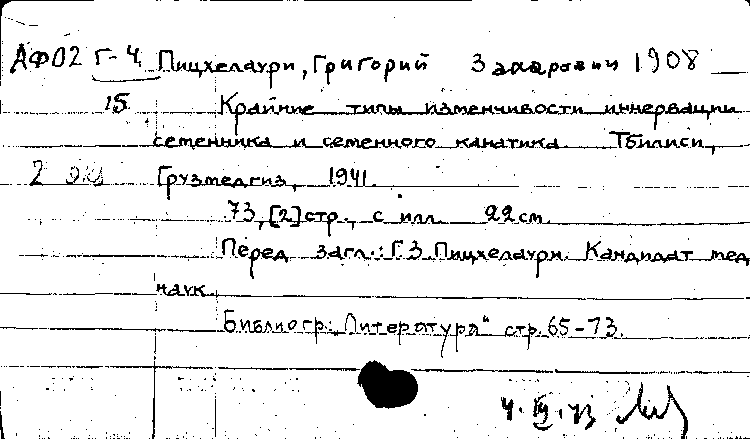 АФ02 Г-4 Пицхелаури, Григорий Захарович 1908
15 Крайние типы изменчивости иннервации
семенника и семенного канатика. Тбилиси,
2 экз Грузмедгиз, 1941.
73, [2] стр., с илл. 22 см.
Перед загл.: Г.З. Пицхелаури. Кандидат мед
наук.
Библиогр: „Литература" стр. 65-73.
4.IV.73